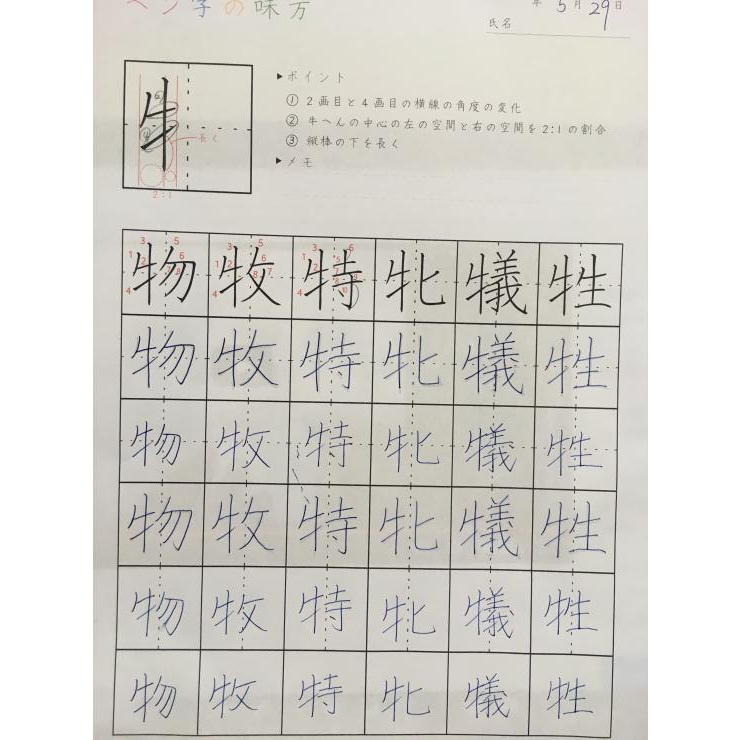 ペン字の味方
年 5月 29日
氏名
牛
長く
2:1
▶ポイント
① 2画目と4画目の横線の角度の変化
② 牛へんの中心の左の空間と右の空間を2:1の割合
③ 縦棒の下を長く
▶メモ
物 牧 特 牝 犠 牲
物 牧 特 牝 犠 牲
物 牧 特 牝 犠 牲
物 牧 特 牝 犠 牲
物 牧 特 牝 犠 牲
物 牧 特 牝 犠 牲